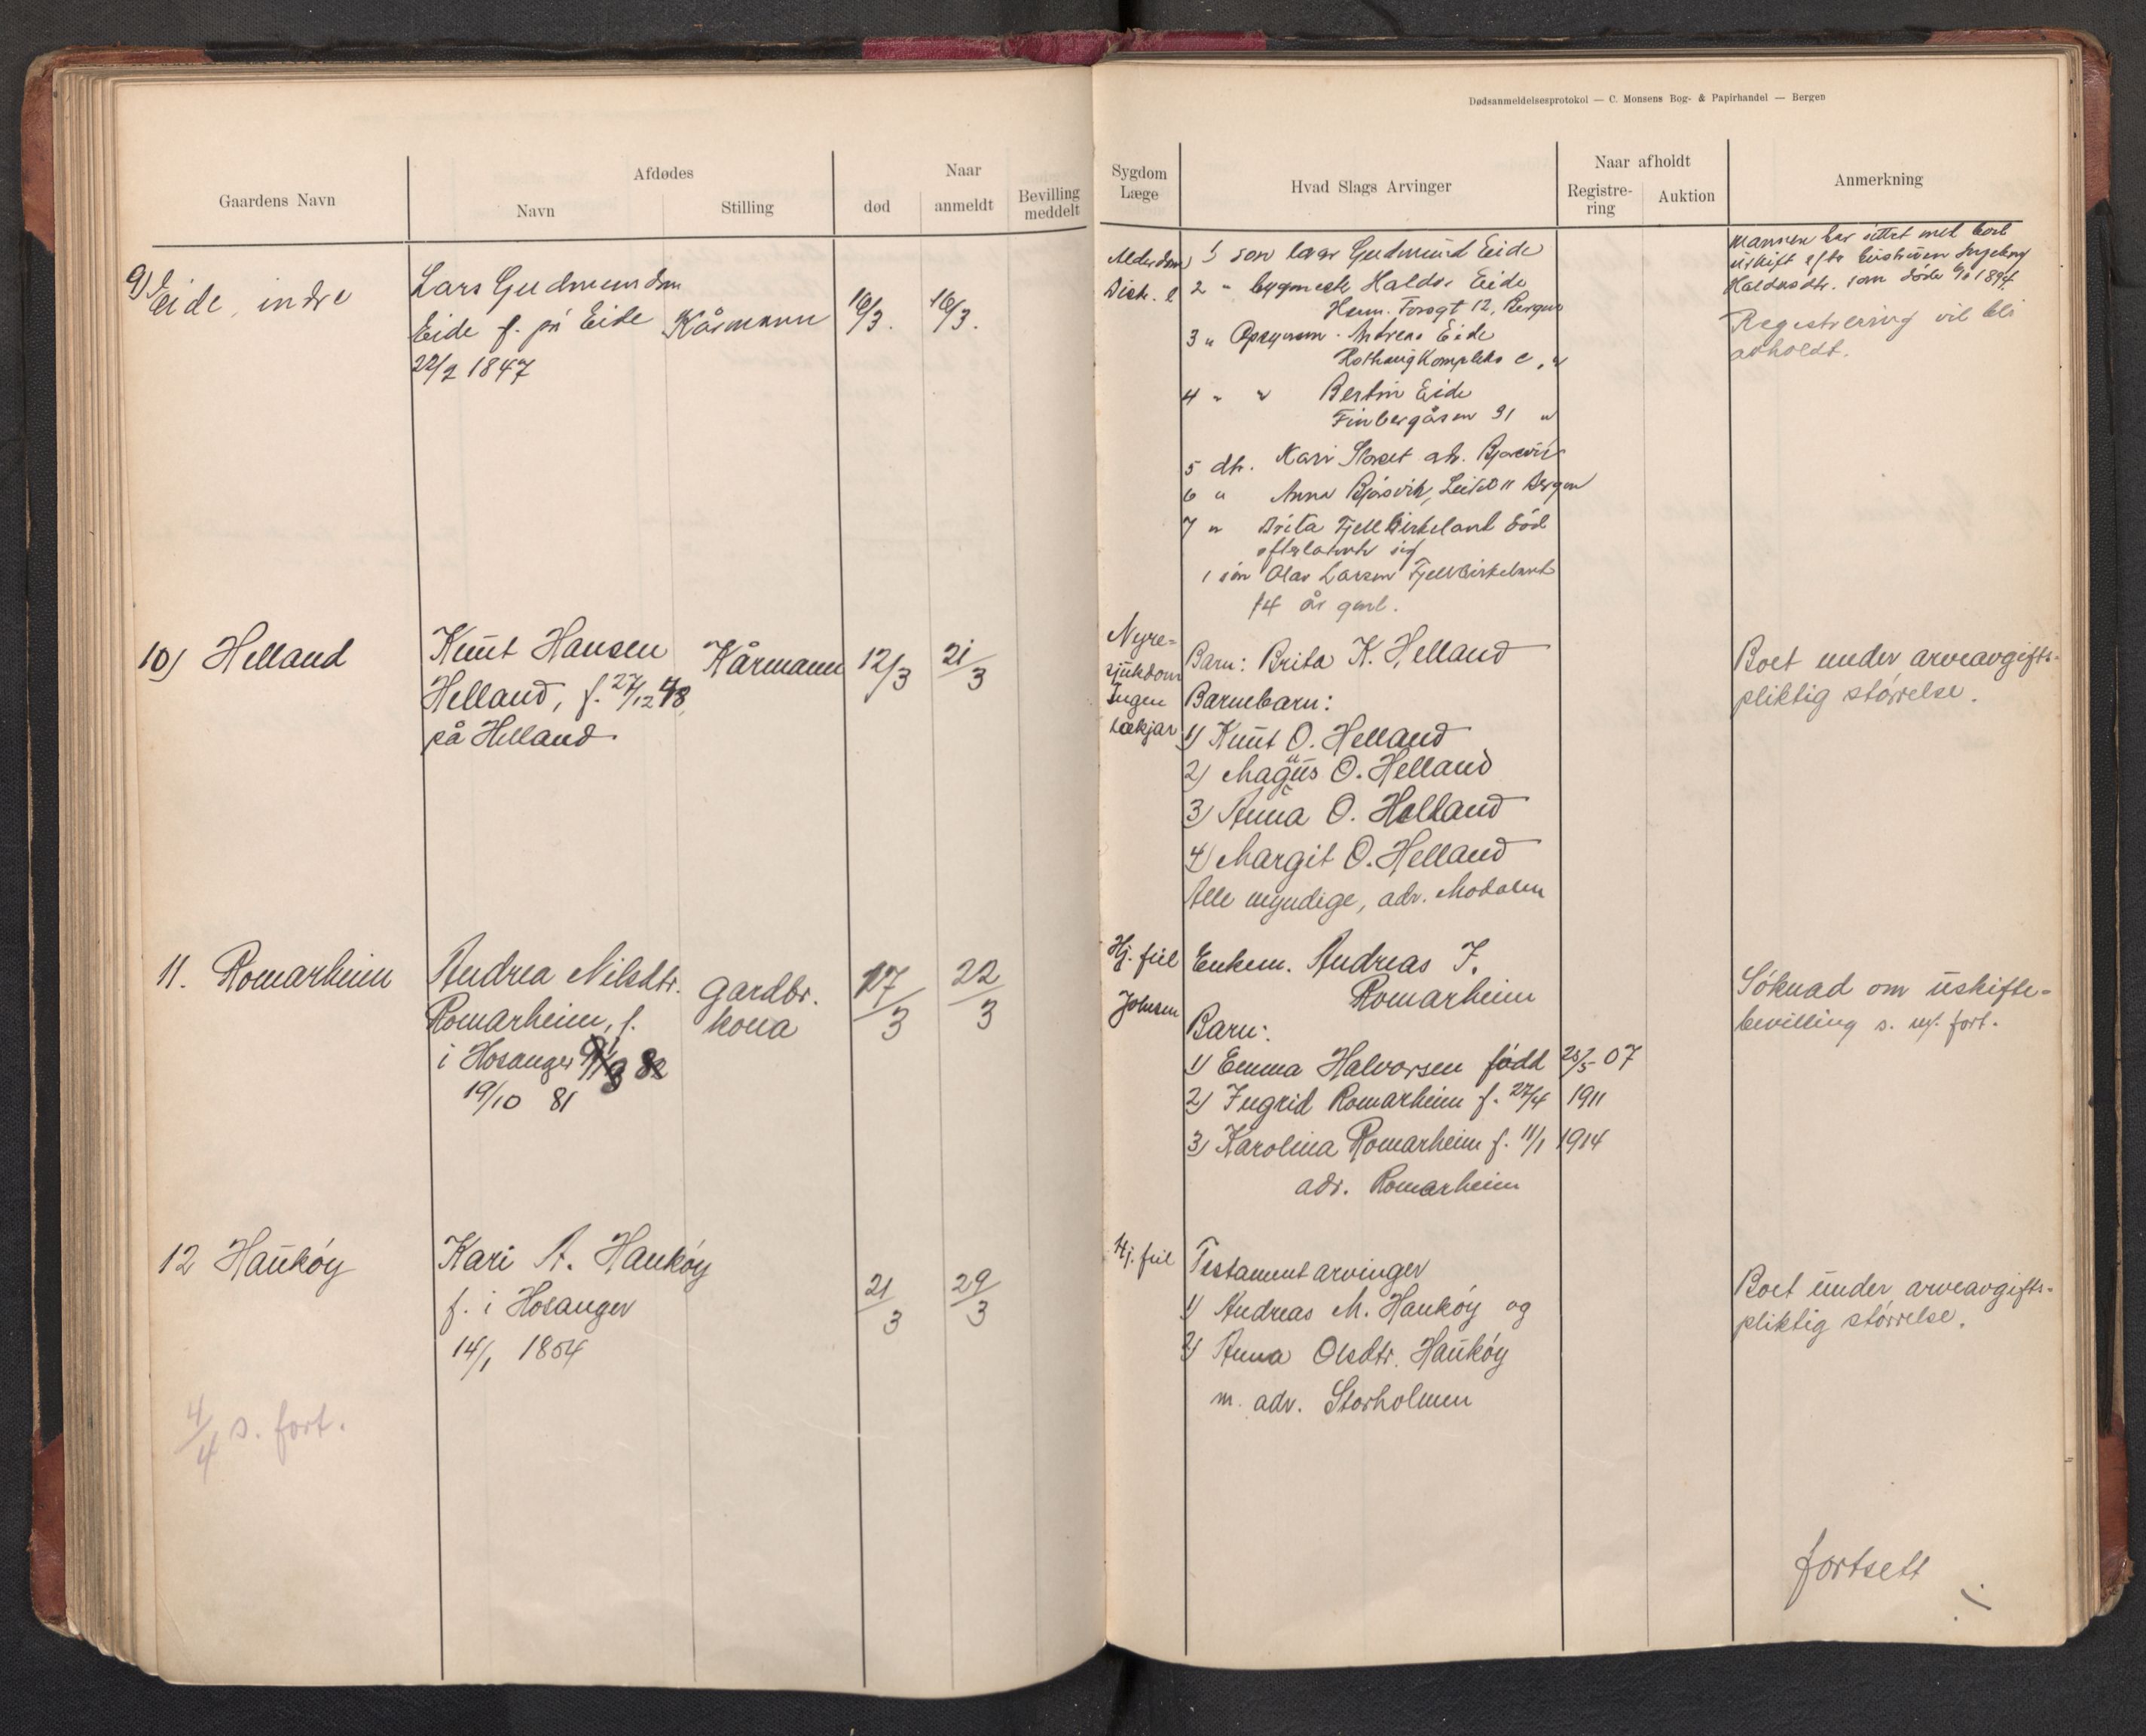 Dødsanmeldelsesprotokol — C. Monsens Bog- & Papirhandel — Bergen
Gaardens Navn
Afdødes
Navn
Stilling
Naar
død
anmeldt
Bevilling
meddelt
Sygdom
Læge
Hvad Slags Arvinger
Naar afholdt
Registre-
ring
Auktion
Anmerkning
9) Eide, indre
Lars Gudmundsen
Eide f. på Eide
22/2 1847
Kårmann
16/3.
16/3.
Alderdom
Distr. l
1 son lærar Gudmund Eide
2 " bygmester Haldor Eide
Herm. Foosgt 12, Bergen
3 " Andreas Eide
Rothaugkompleks c, "
4 " " Bertin Eide
Finbergåsen 31 "
5 dtr. Kari adr.
6 " Anna Bjørsvik, Bergen
7 " Brita Fjellbirkeland død
efterlatende sig
1 søn Olav Larsen Fjellbirkeland
14 år gml.
Mannen har sittet med boet
uskift efter hustruen Ingeborg
Haldorsdtr. som døde 1894
Registrering vil bli
avholdt.
10) Helland
Knut Hansen
Helland, f. 27/12 48,
på Helland.
Kårmann
12/3
21/3
Nyre=
sjukdom
Ingen
lækjar
Barn: Brita K. Helland
Barnebarn:
1) Knut O. Helland
2) Magnus O. Helland
3) Anna O. Helland
4) Margit O. Helland
Alle myndige, adr. Modalen
Boet under arveavgifts-
pliktig størrelse.
11. Romarheim
Andrea Nilsdtr.
Romarheim, f.
i Hosanger
19/10 81
Gardbr.
kona
17/3
22/3
Hj. feil
Johnsen
Enkem. Andreas J.
Romarheim
Barn:
1) Emma Halvorsen fødd 25/5 07
2) Ingrid Romarheim f. 27/4 1911
3) Karolina Romarheim f. 11/1 1914
adr. Romarheim
Søknad om uskifte=
bevilling s. fort.
12 Haukøy
Kari A. Haukøy
f. i Hosanger
14/1 1854
21/3
29/3
Hj. feil
Testament arvinger
1) Andreas M. Haukøy og
2) Anna Olsdtr. Haukøy
m. adr. Storholmen
Boet under arveavgifts-
pliktig størrelse.
4/4 s. fort.
fortsett